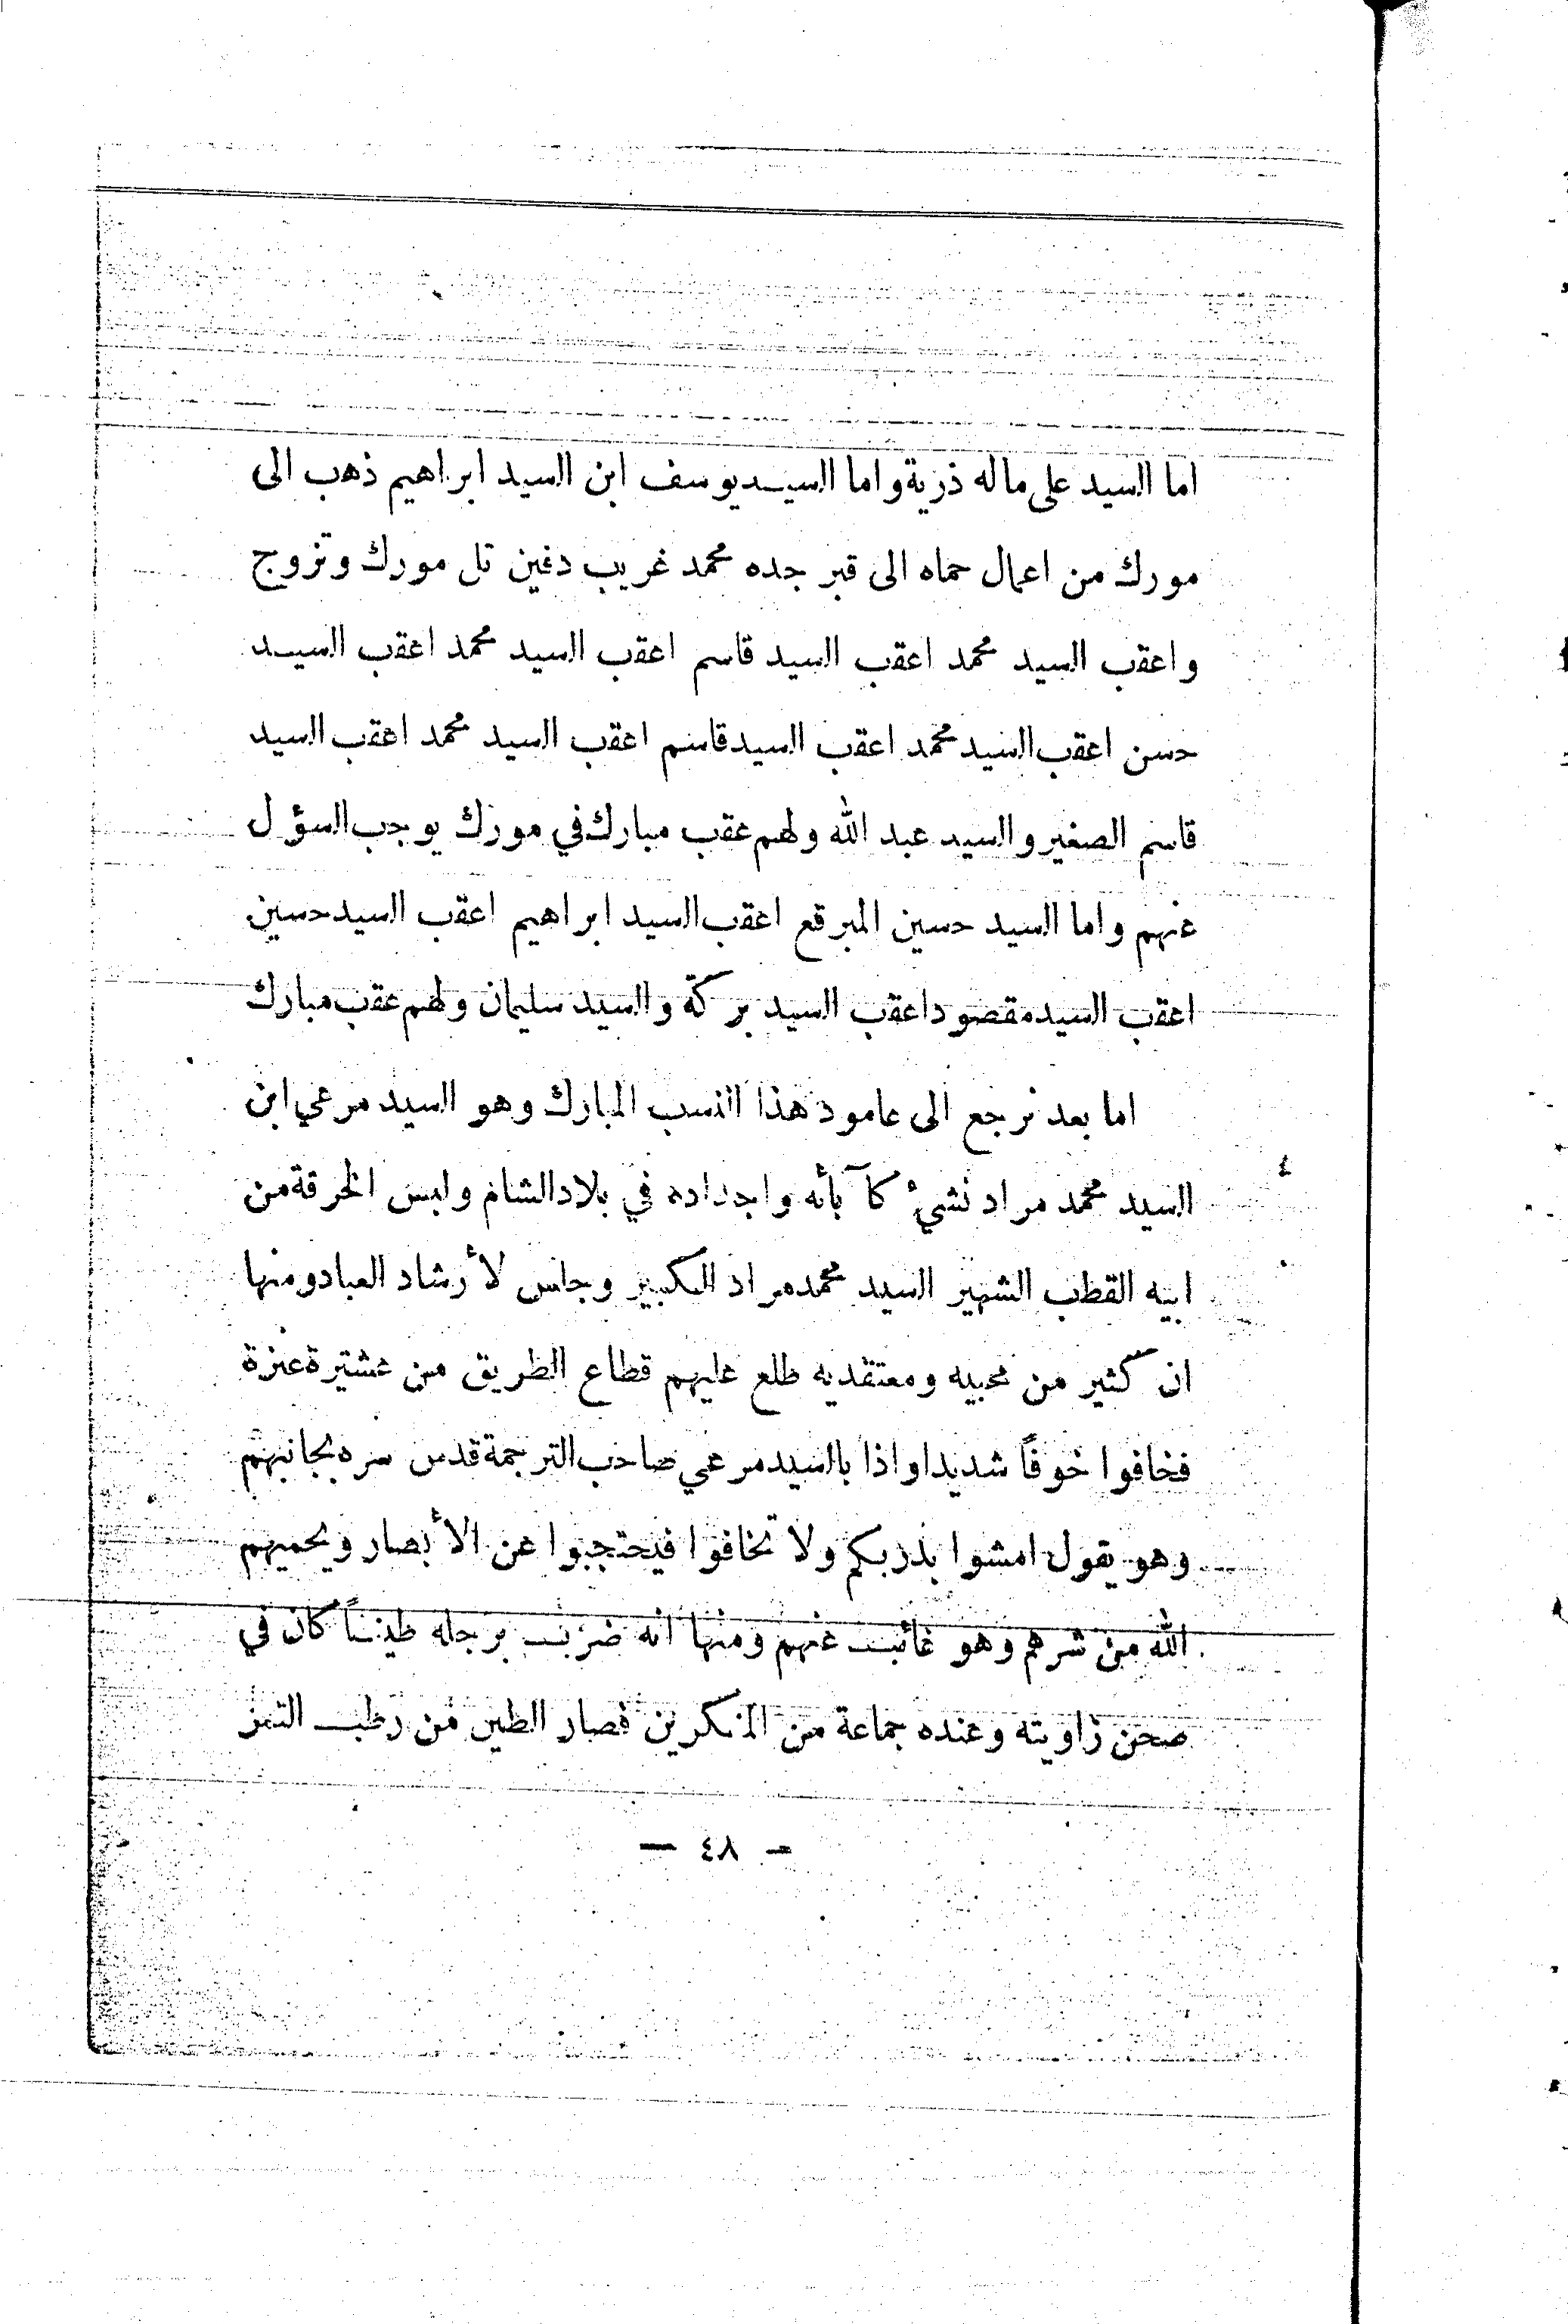 اما السيد على ماله ذرية واما السيد يوسف ابن السيد ابراهيم ذهب الى
مورك من اعمال حماه الى قبر جده محمد غريب دفين تل مورك وتزوج
واعقب السيد محمد اعقب السيد قاسم اعقب السيد محمد اعقب السيد
حسن اعقب السيد محمد اعقب السيد قاسم اعقب السيد محمد اعقب السيد
قاسم الصغير والسيد عبد الله ولهم عقب مبارك في مورك يوجب السؤل
عنهم واما السيد حسين المبرقع اعقب السيد ابراهيم اعقب السيد حسين
اعقب السيد مقصود اعقب السيد بركة والسيد سليمان ولهم عقب مبارك
اما بعد نرجع الى عامود هذا النسب المبارك وهو السيد مرعي ابن
السيد محمد مراد نشئ كآبأئه واجداده في بلاد الشام ولبس الخرقة من
٤
ابيه القطب الشهير السيد محمد مراد الكبير وجلس لأرشاد العباد ومنها
ان كثير من محبيه ومعتقديه طلع عليهم قطاع الطريق من عشيرة عنزة
فخافوا خوفاً شديدا واذا بالسيد مرعي صاحب الترجمة قدس سره بجانبهم
وهو يقول امشوا بدربكم ولا تخافوا فيحتجبوا عن الأبصار ويحميهم
الله من شرهم وهو غائب عنهم ومنها انه ضرب برجله طيناً كان في
صحن زاويته وعنده جماعة من المنكرين فصار الطين من رطب التمر
- ٤٨ -